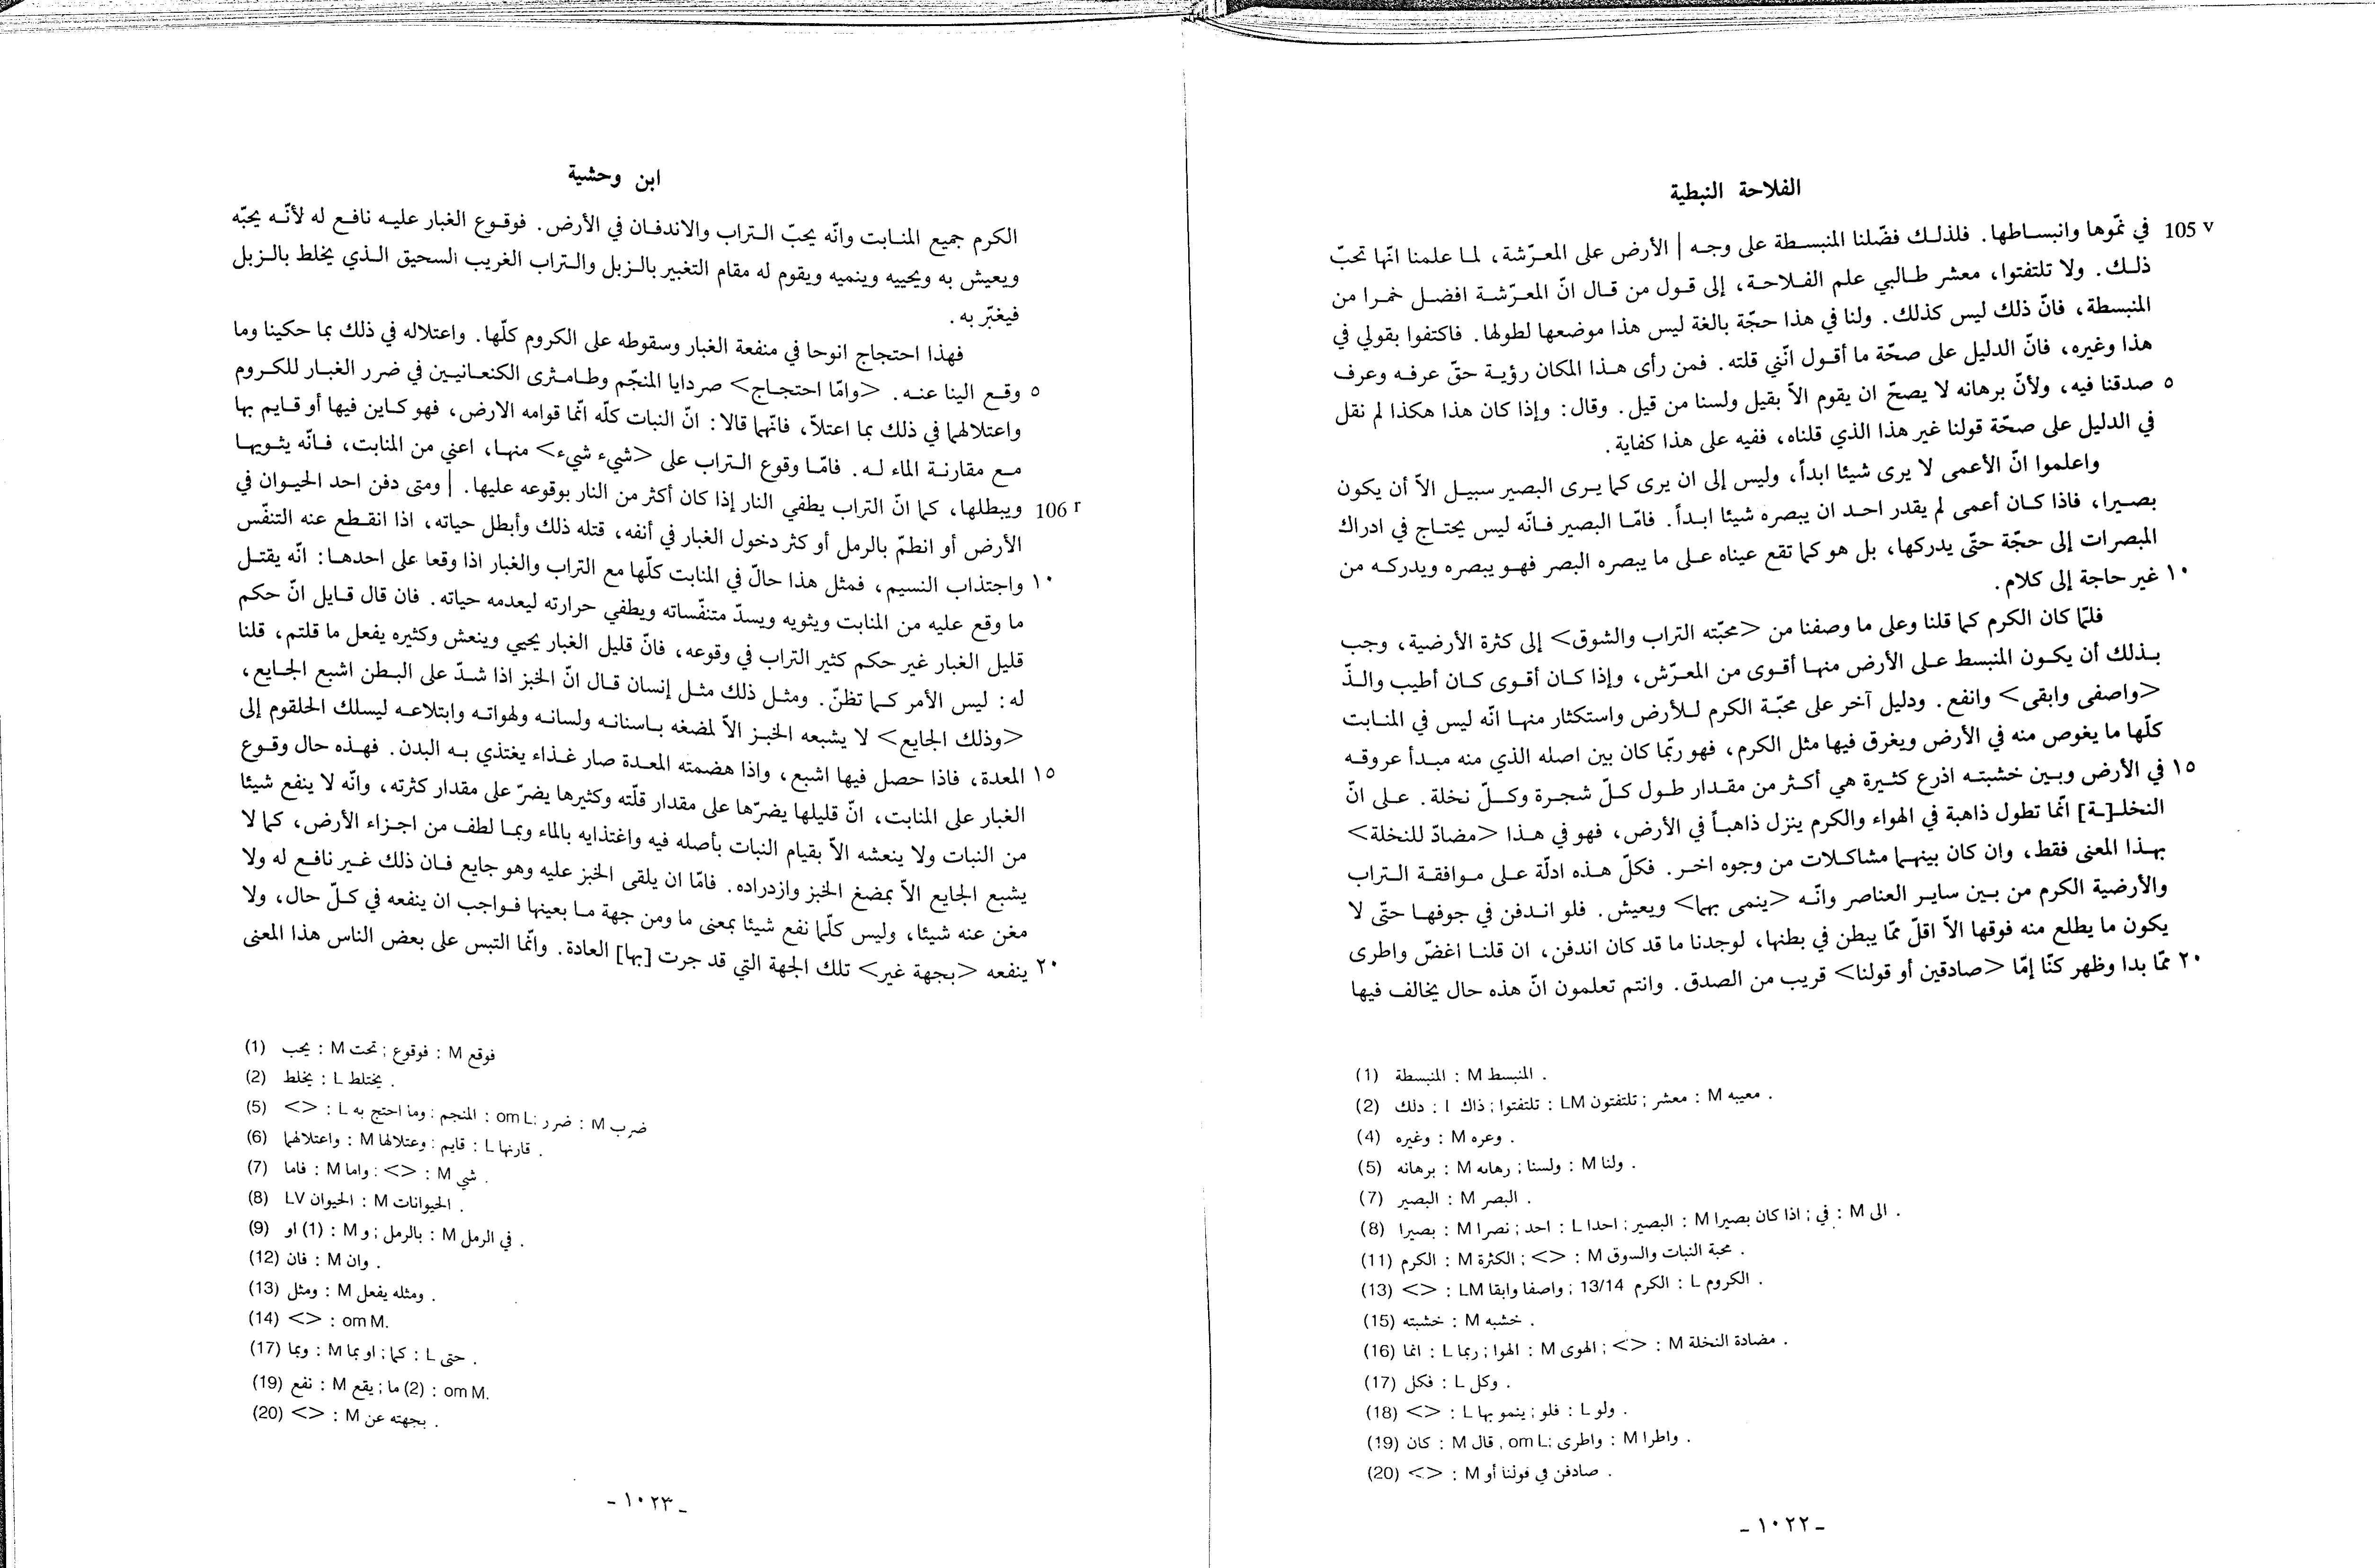 الفلاحة النبطية
105 v في نمّوها وانبسـاطها. فلذلـك فضّلنا المنبسـطة على وجـه | الأرض على المعـرّشة، لمـا علمنا انّها تحبّ
ذلـك. ولا تلتفتوا، معشر طـالبي علم الفـلاحـة، إلى قـول من قـال انّ المعـرّشـة افضـل خمـرا من
المنبسطة، فانّ ذلك ليس كذلك. ولنا في هذا حجّة بالغة ليس هذا موضعها لطولها. فاكتفوا بقولي في
هذا وغيره، فانّ الدليل على صحّة ما أقـول انّني قلته. فمن رأى هـذا المكان رؤيـة حقّ عرفـه وعرف
٥ صدقنا فيه، ولأنّ برهانه لا يصحّ ان يقوم الاّ بقيل ولسنا من قيل. وقال: وإذا كان هذا هكذا لم نقل
في الدليل على صحّة قولنا غير هذا الذي قلناه، ففيه على هذا كفاية.
واعلموا انّ الأعمى لا يرى شيئا ابداً، وليس إلى ان يرى كما يـرى البصير سبيـل الاّ أن يكون
بصـيرا، فاذا كـان أعمى لم يقدر احـد ان يبصره شيئا ابـداً. فامّـا البصير فـانّه ليس يحتـاج في ادراك
المبصرات إلى حجّة حتّى يدركها، بل هو كما تقع عيناه علـى ما يبصره البصر فهـو يبصره ويدركـه من
١٠ غير حاجة إلى كلام.
فلمّا كان الكرم كما قلنا وعلى ما وصفنا من <محبّته التراب والشوق> إلى كثرة الأرضية، وجب
بـذلك أن يكـون المنبسط علـى الأرض منهـا أقـوى من المعـرّش، وإذا كـان أقـوى كـان أطيب والـذّ
<واصفى وابقى> وانفع. ودليل آخر على محبّـة الكرم لـلأرض واستكثار منهـا انّه ليس في المنـابت
كلّها ما يغوص منه في الأرض ويغرق فيها مثل الكرم، فهو ربّما كان بين اصله الذي منه مبـدأ عروقـه
١٥ في الأرض وبـين خشبتـه اذرع كثـيرة هي أكثـر من مقـدار طـول كـلّ شجـرة وكـلّ نخلة. علـى انّ
النخلـ[ـة] انّما تطول ذاهبة في الهواء والكرم ينزل ذاهبـاً في الأرض، فهو في هـذا <مضادّ للنخلة>
بهـذا المعنى فقط، وان كان بينهـما مشاكـلات من وجوه اخـر. فكلّ هـذه ادلّة علـى مـوافقـة الـتراب
والأرضية الكرم من بـين سايـر العناصر وانّـه <ينمى بهما> ويعيش. فلو انـدفن في جوفهـا حتّى لا
يكون ما يطلع منه فوقها الاّ اقلّ ممّا يبطن في بطنها، لوجدنا ما قد كان اندفن، ان قلنـا اغضّ واطرى
٢٠ ممّا بدا وظهر كنّا إمّا <صادقين أو قولنا> قريب من الصدق. وانتم تعلمون انّ هذه حال يخالف فيها
(1) المنبسطة : M المنبسط .
(2) دلك : l ذاك ; تلتفتوا : LM تلتفتون ; معشر : M معيبه .
(4) وغيره : M وعره .
(5) برهانه : M رهانه ; ولسنا : M ولنا .
(7) البصير : M البصر .
(8) بصيرا : M نصرا ; احد : L احدا ; البصير : M اذا كان بصيرا ; في : M الى .
(11) الكرم : M الكثرة ; <> : M محبة النبات والسوق .
(13) <> : LM واصفا وابقا ; 13/14 الكرم : L الكروم .
(15) خشبته : M خشبه .
(16) انما : L ربما ; الهوا : M الهوى ; <> : M مضادة النخلة .
(17) فكل : L وكل .
(18) <> : L ينمو بها ; فلو : L ولو .
(19) كان : M قال , om L; واطرى : M واطرا .
(20) <> : M صادفن في قولنا أو .
ـ ١٠٢٢ ـ
ابن وحشية
الكرم جميع المنـابت وانّه يحبّ الـتراب والاندفـان في الأرض. فوقـوع الغبار عليـه نافـع له لأنّـه يحبّه
ويعيش به ويحييه وينميه ويقوم له مقام التغبير بالـزبل والـتراب الغريب السحيق الـذي يخلط بالـزبل
فيغبّر به.
فهذا احتجاج انوحا في منفعة الغبار وسقوطه على الكروم كلّها. واعتلاله في ذلك بما حكينا وما
٥ وقـع الينا عنـه. <وامّا احتجـاج> صردايا المنجّم وطـامـثرى الكنعـانيـين في ضرر الغبـار للكـروم
واعتلالهما في ذلك بما اعتلاّ، فانّهما قالا: انّ النبات كلّه انّما قوامه الارض، فهو كـاين فيها أو قـايم بها
مـع مقارنـة الماء لـه. فامّـا وقوع الـتراب على <شيء شيء> منهـا، اعني من المنابت، فـانّه يثـويهـا
106 r ويبطلها، كـما انّ التراب يطفي النار إذا كان أكثر من النار بوقوعه عليها. | ومتى دفن احد الحيـوان في
الأرض أو انطمّ بالرمل أو كثر دخول الغبار في أنفه، قتله ذلك وأبطل حياته، اذا انقـطع عنه التنفّس
١٠ واجتذاب النسيم، فمثل هذا حالّ في المنابت كلّها مع التراب والغبار اذا وقعا على احدهـا: انّه يقتـل
ما وقع عليه من المنابت ويثويه ويسدّ متنفّساته ويطفي حرارته ليعدمه حياته. فان قال قـايل انّ حكم
قليل الغبار غير حكم كثير التراب في وقوعه، فانّ قليل الغبار يحيي وينعش وكثيره يفعل ما قلتم، قلنا
له: ليس الأمر كـما تظنّ. ومثـل ذلك مثـل إنسان قـال انّ الخبز اذا شـدّ على البـطن اشبع الجـايع،
<وذلك الجايع> لا يشبعه الخبـز الاّ لمضغه بـاسنانـه ولسانـه ولهواتـه وابتلاعـه ليسلك الحلقوم إلى
١٥ المعدة، فاذا حصل فيها اشبع، واذا هضمته المعـدة صار غـذاء يغتذي بـه البدن. فهـذه حال وقـوع
الغبار على المنابت، انّ قليلها يضرّها على مقدار قلّته وكثيرها يضرّ على مقدار كثرته، وانّه لا ينفع شيئا
من النبات ولا ينعشه الاّ بقيام النبات بأصله فيه واغتذايه بالماء وبمـا لطف من اجـزاء الأرض، كما لا
يشبع الجايع الاّ بمضغ الخبز وازدراده. فامّا ان يلقى الخبز عليه وهو جايع فـان ذلك غـير نافـع له ولا
مغن عنه شيئا، وليس كلّما نفع شيئا بمعنى ما ومن جهة مـا بعينها فـواجب ان ينفعه في كـلّ حال، ولا
٢٠ ينفعه <بجهة غير> تلك الجهة التي قد جرت [بها] العادة. وانّما التبس على بعض الناس هذا المعنى
(1) يحب : M تحت ; فوقوع : M فوقع
(2) يخلط : L يختلط .
(5) <> : L وما احتج به ; المنجم : om L; ضرر : M ضرب
(6) واعتلالهما : M وعتلالها ; قايم : L قارنها .
(7) فاما : M واما ; <> : M شي .
(8) LV الحيوان : M الحيوانات .
(9) او (1) : M و ; بالرمل : M في الرمل .
(12) فان : M وان .
(13) ومثل : M ومثله يفعل .
(14) <> : om M.
(17) وبما : M او بما ; كما : L حتى .
(19) نفع : M يقع ; ما (2) : om M.
(20) <> : M بجهته عن .
ـ ١٠٢٣ ـ